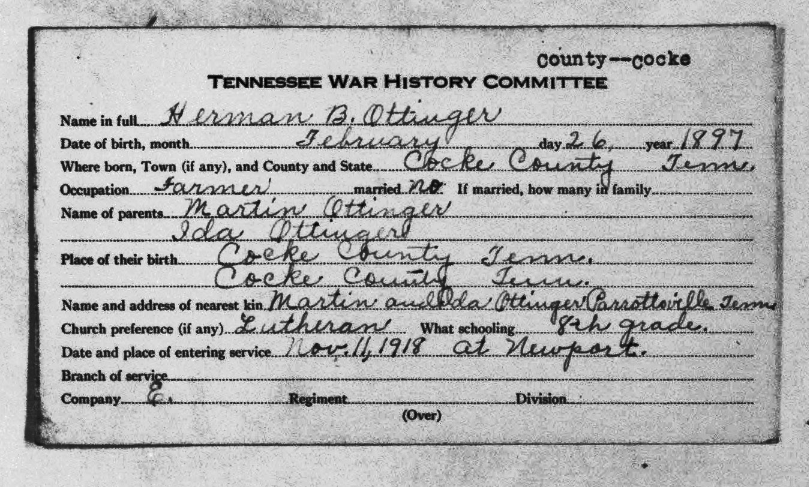 County--Cocke
TENNESSEE WAR HISTORY COMMITTEE
Name in full Herman B. Ottinger
Date of birth, month February day 26, year 1897
Where born, Town (if any), and County and State Cocke County Tenn.
Occupation Farmer married no. If married, how many in family
Name of parents Martin Ottinger
Ida Ottinger
Place of their birth Cocke County Tenn.
Cocke County Tenn.
Name and address of nearest kin Martin and Ida Ottinger Parrottsville Tenn
Church preference (if any) Lutheran What schooling 8th grade.
Date and place of entering service Nov. 11, 1918 at Newport.
Branch of service
Company E. Regiment Division
(Over)